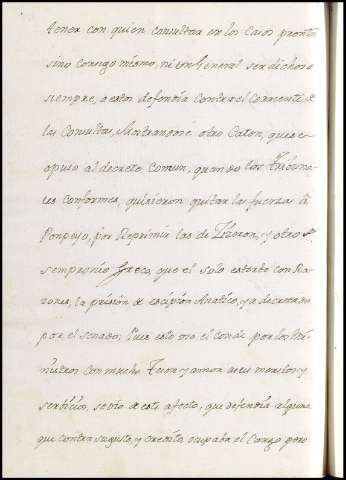 tener con quien consultar en los Casos prontos
sino consigo mismo, ni en General ser dichoso
siempre, a estos defendia contra el Corriente de
las Consultas, otro Caton, que se o
opuso al decreto Comun, quando los Tribuna
les conformes, quisieron quitar las fuerzas à
Ponpeyo, por Reprimir las de y otro
sempronio Greco, que el solo estorbo con Ra
zones, la prision de escipion Asiatico, ya decretada
por el senado; Pues esto
nistros con mucho amor a sus meritos, y
serbicios, se vio de este afecto, que defendia alguna
que contra su gusto, y credito, ocupaba el Cargo pero